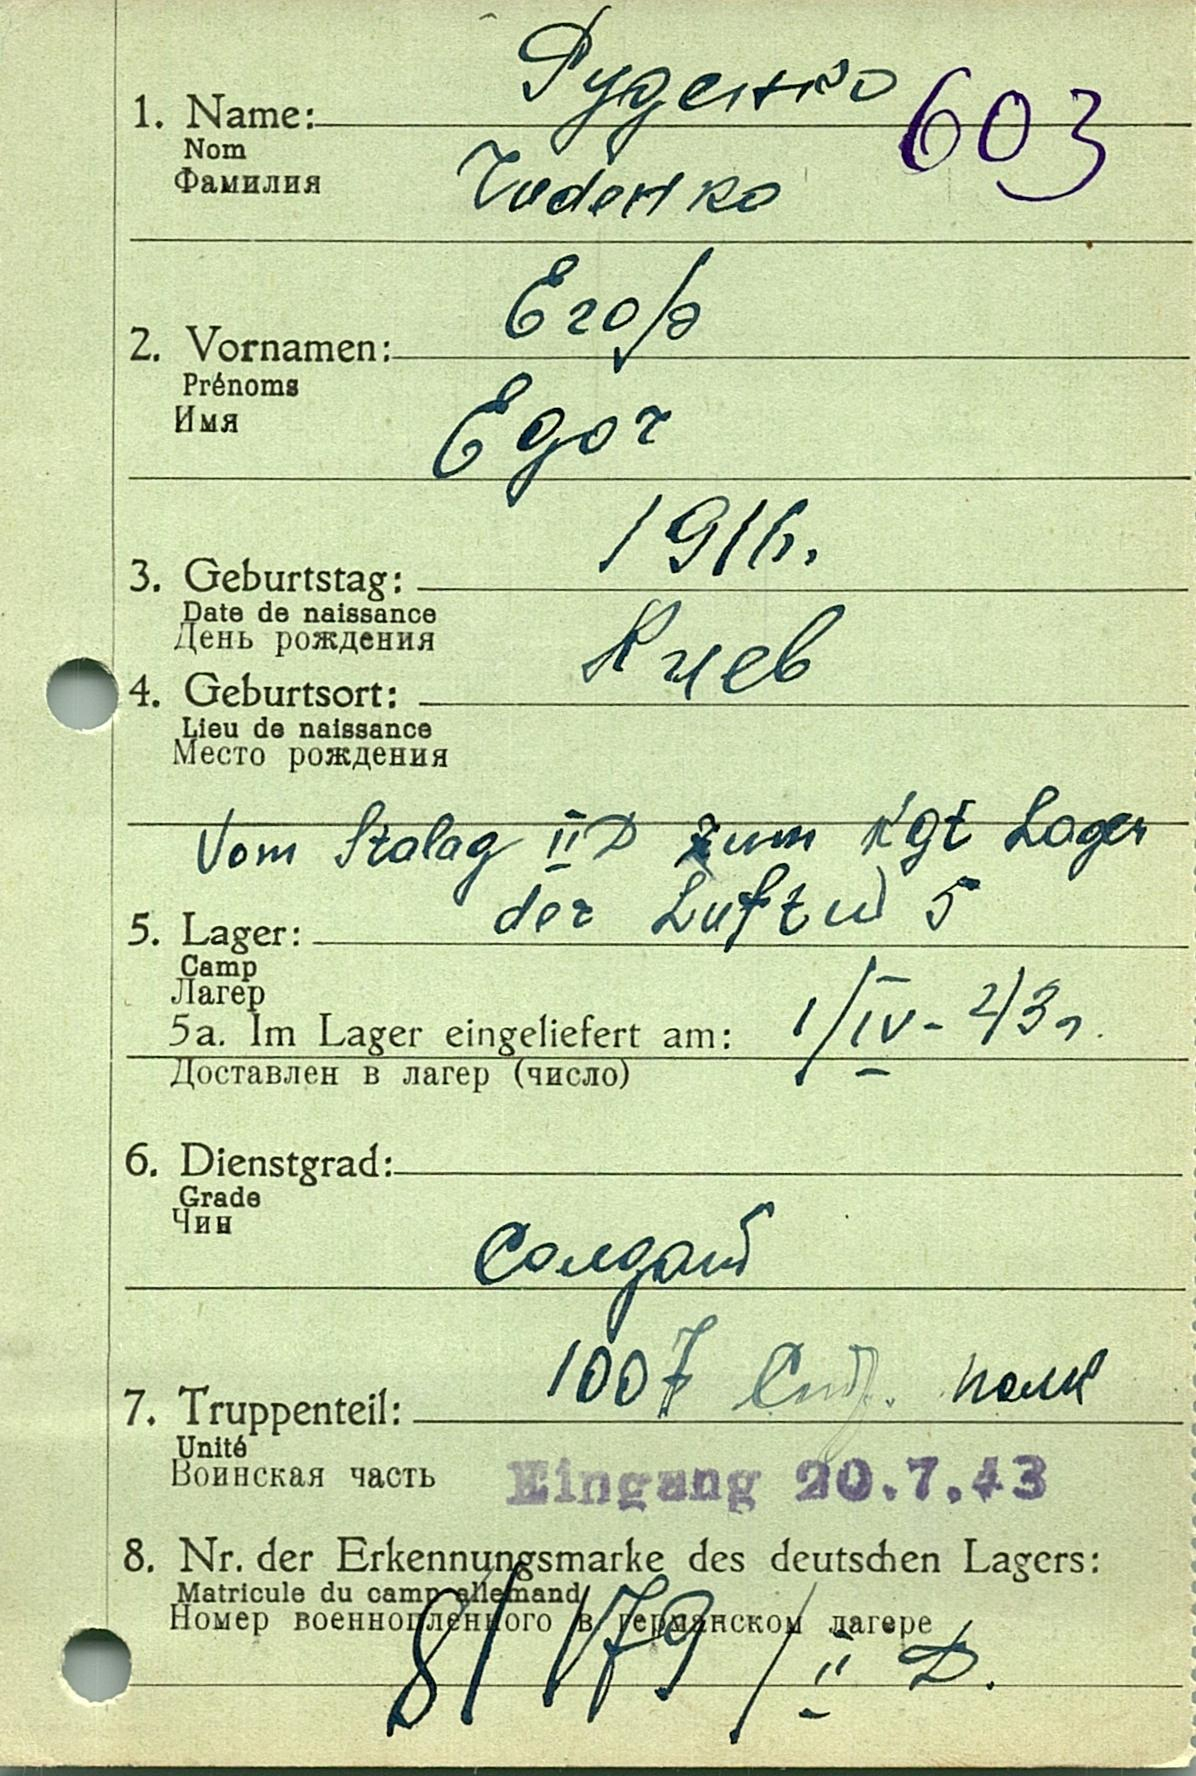 Руденко
603
1. Name:
Nom
Фамилия
Rudenko
Егор
2. Vornamen:
Prénoms
Имя
Egor
1916.
3. Geburtstag:
Date de naissance
День рождения
Киев
4. Geburtsort:
Lieu de naissance
Место рождения
Vom Stalag II D zum Kgf Lager
der Luftw 5
5. Lager:
Camp
Лагер
5a. Im Lager eingeliefert am: 1/IV-43г.
Доставлен в лагер (число)
6. Dienstgrad:
Grade
Чин
Солдат
1007 полк
7. Truppenteil:
Unité
Воинская часть
Eingang 20.7.43
8. Nr. der Erkennungsmarke des deutschen Lagers:
Matricule du camp allemand
Номер военнопленного в германском лагере
/ II D.